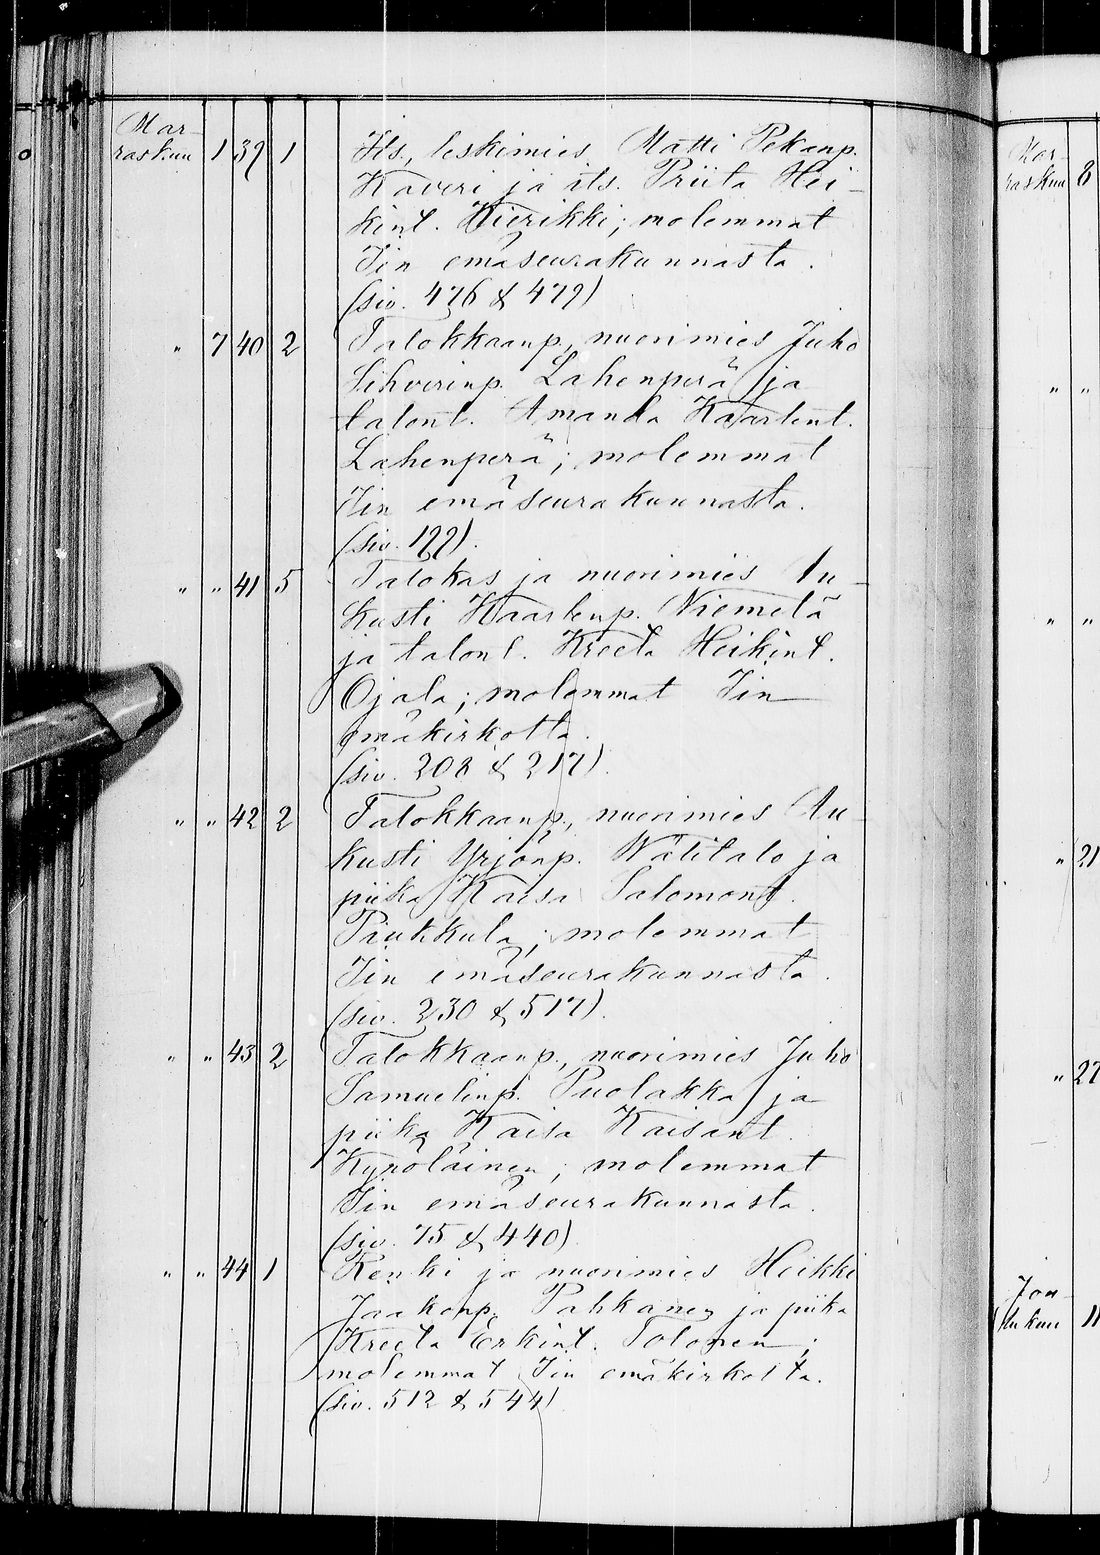 Mar-
raskuu 1 39 1 Its., leskimies Matti Pekanp.
Kaveri ja its. Priita Hei-
kint. Kierikki; molemmat
Iin emäseurakunnasta.
(siv. 476 & 479)
" 7 40 2 Talokkaanp., nuorimies Juho
Sihverinp. Lahenperä ja
talont. Amanda Kaarlent.
Lahenperä; molemmat
Iin emäseurakunnasta.
(siv. 199).
" " 41 5 Talokas ja nuorimies Au-
kusti Kaarlenp. Niemelä
ja talont. Kreeta Heikint.
Ojala; molemmat Iin
emäkirkolta.
(siv. 208 & 217).
" " 42 2 Talokkaanp., nuorimies Au-
kusti Yrjönp. Wälitalo ja
piika Kaisa Salomont.
Piukkula; molemmat
Iin emäseurakunnasta.
(siv. 230 & 517).
" " 43 2 Talokkaanp., nuorimies Juho
Samuelinp. Puolakka ja
piika Kaisa Kaisant.
Kynöläinen; molemmat
Iin emäseurakunnasta.
(siv. 75 & 440)
" " 44 1 Renki ja nuorimies Heikki
Jaakonp. Pahkanen ja piika
Kreeta Erkint. Tolonen;
molemmat Iin emäkirkolta.
(siv. 512 & 544)
Mar-
raskuu 8
" "
" "
" 21
" 27
Jou-
lukuu 11